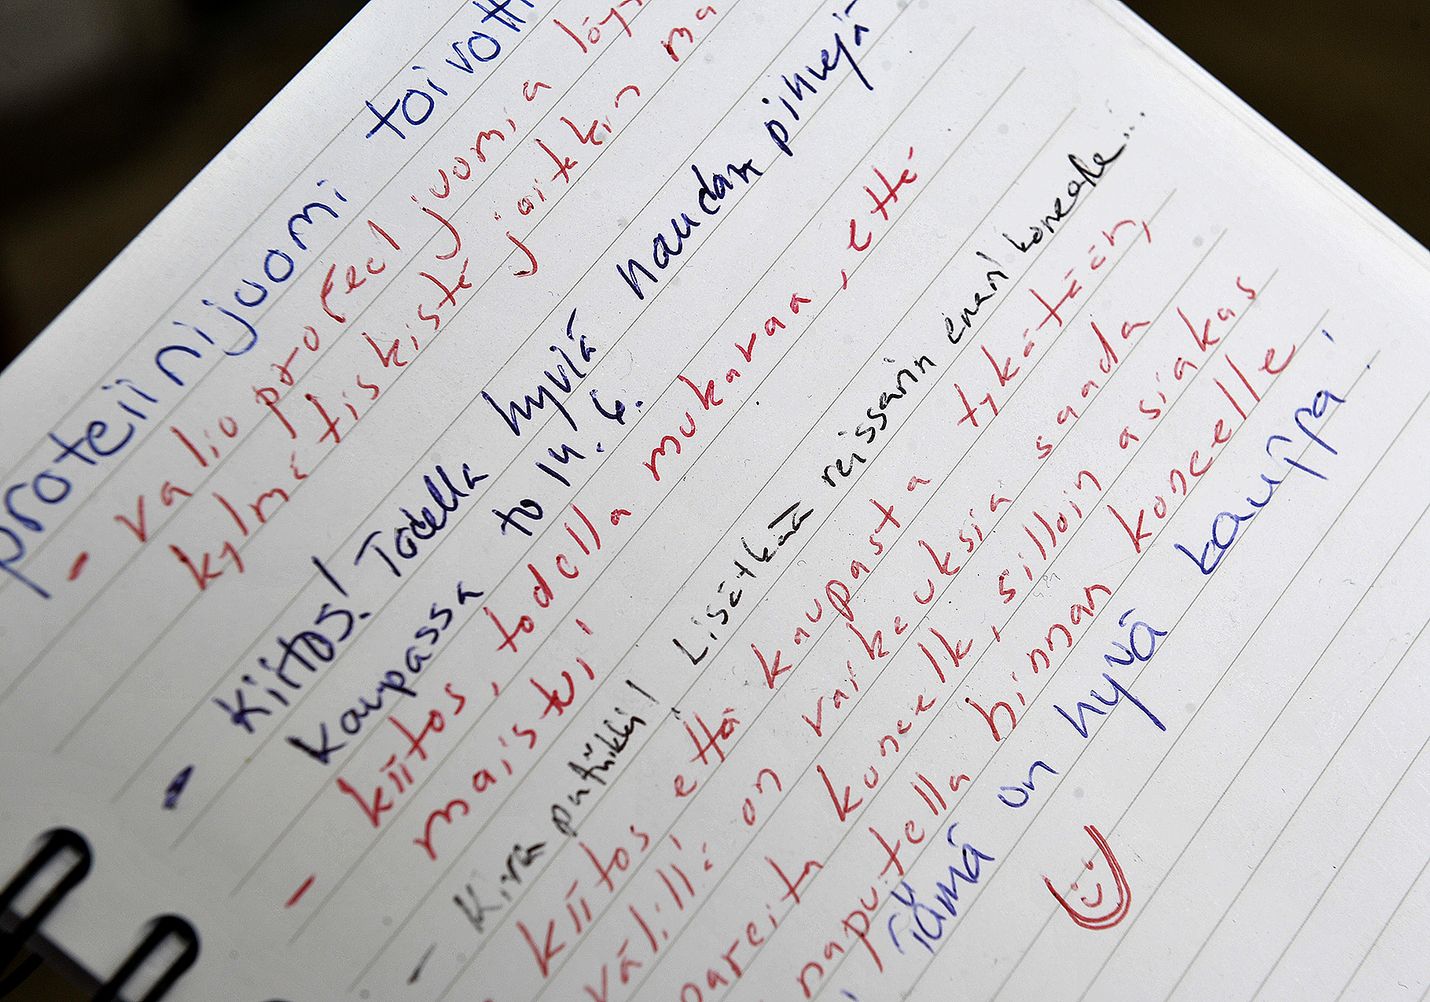 proteiinijuomi toivott
- valio profeel juomia löy
kylmä tiskistä joitakin ma
- Kiitos! Todella hyviä naudan pihvejä
kaupassa to 14.6.
- kiitos, todella mukavaa, että
maistui!
- Kiva putiikki! Lisätkää reissarin eväni koneelle...
kiitos että kaupasta tykätään,
välillä on vaikeuksia saada
pareita koneelle, silloin asiakas
naputella hinnan koneelle
Tämä on hyvä kauppa!